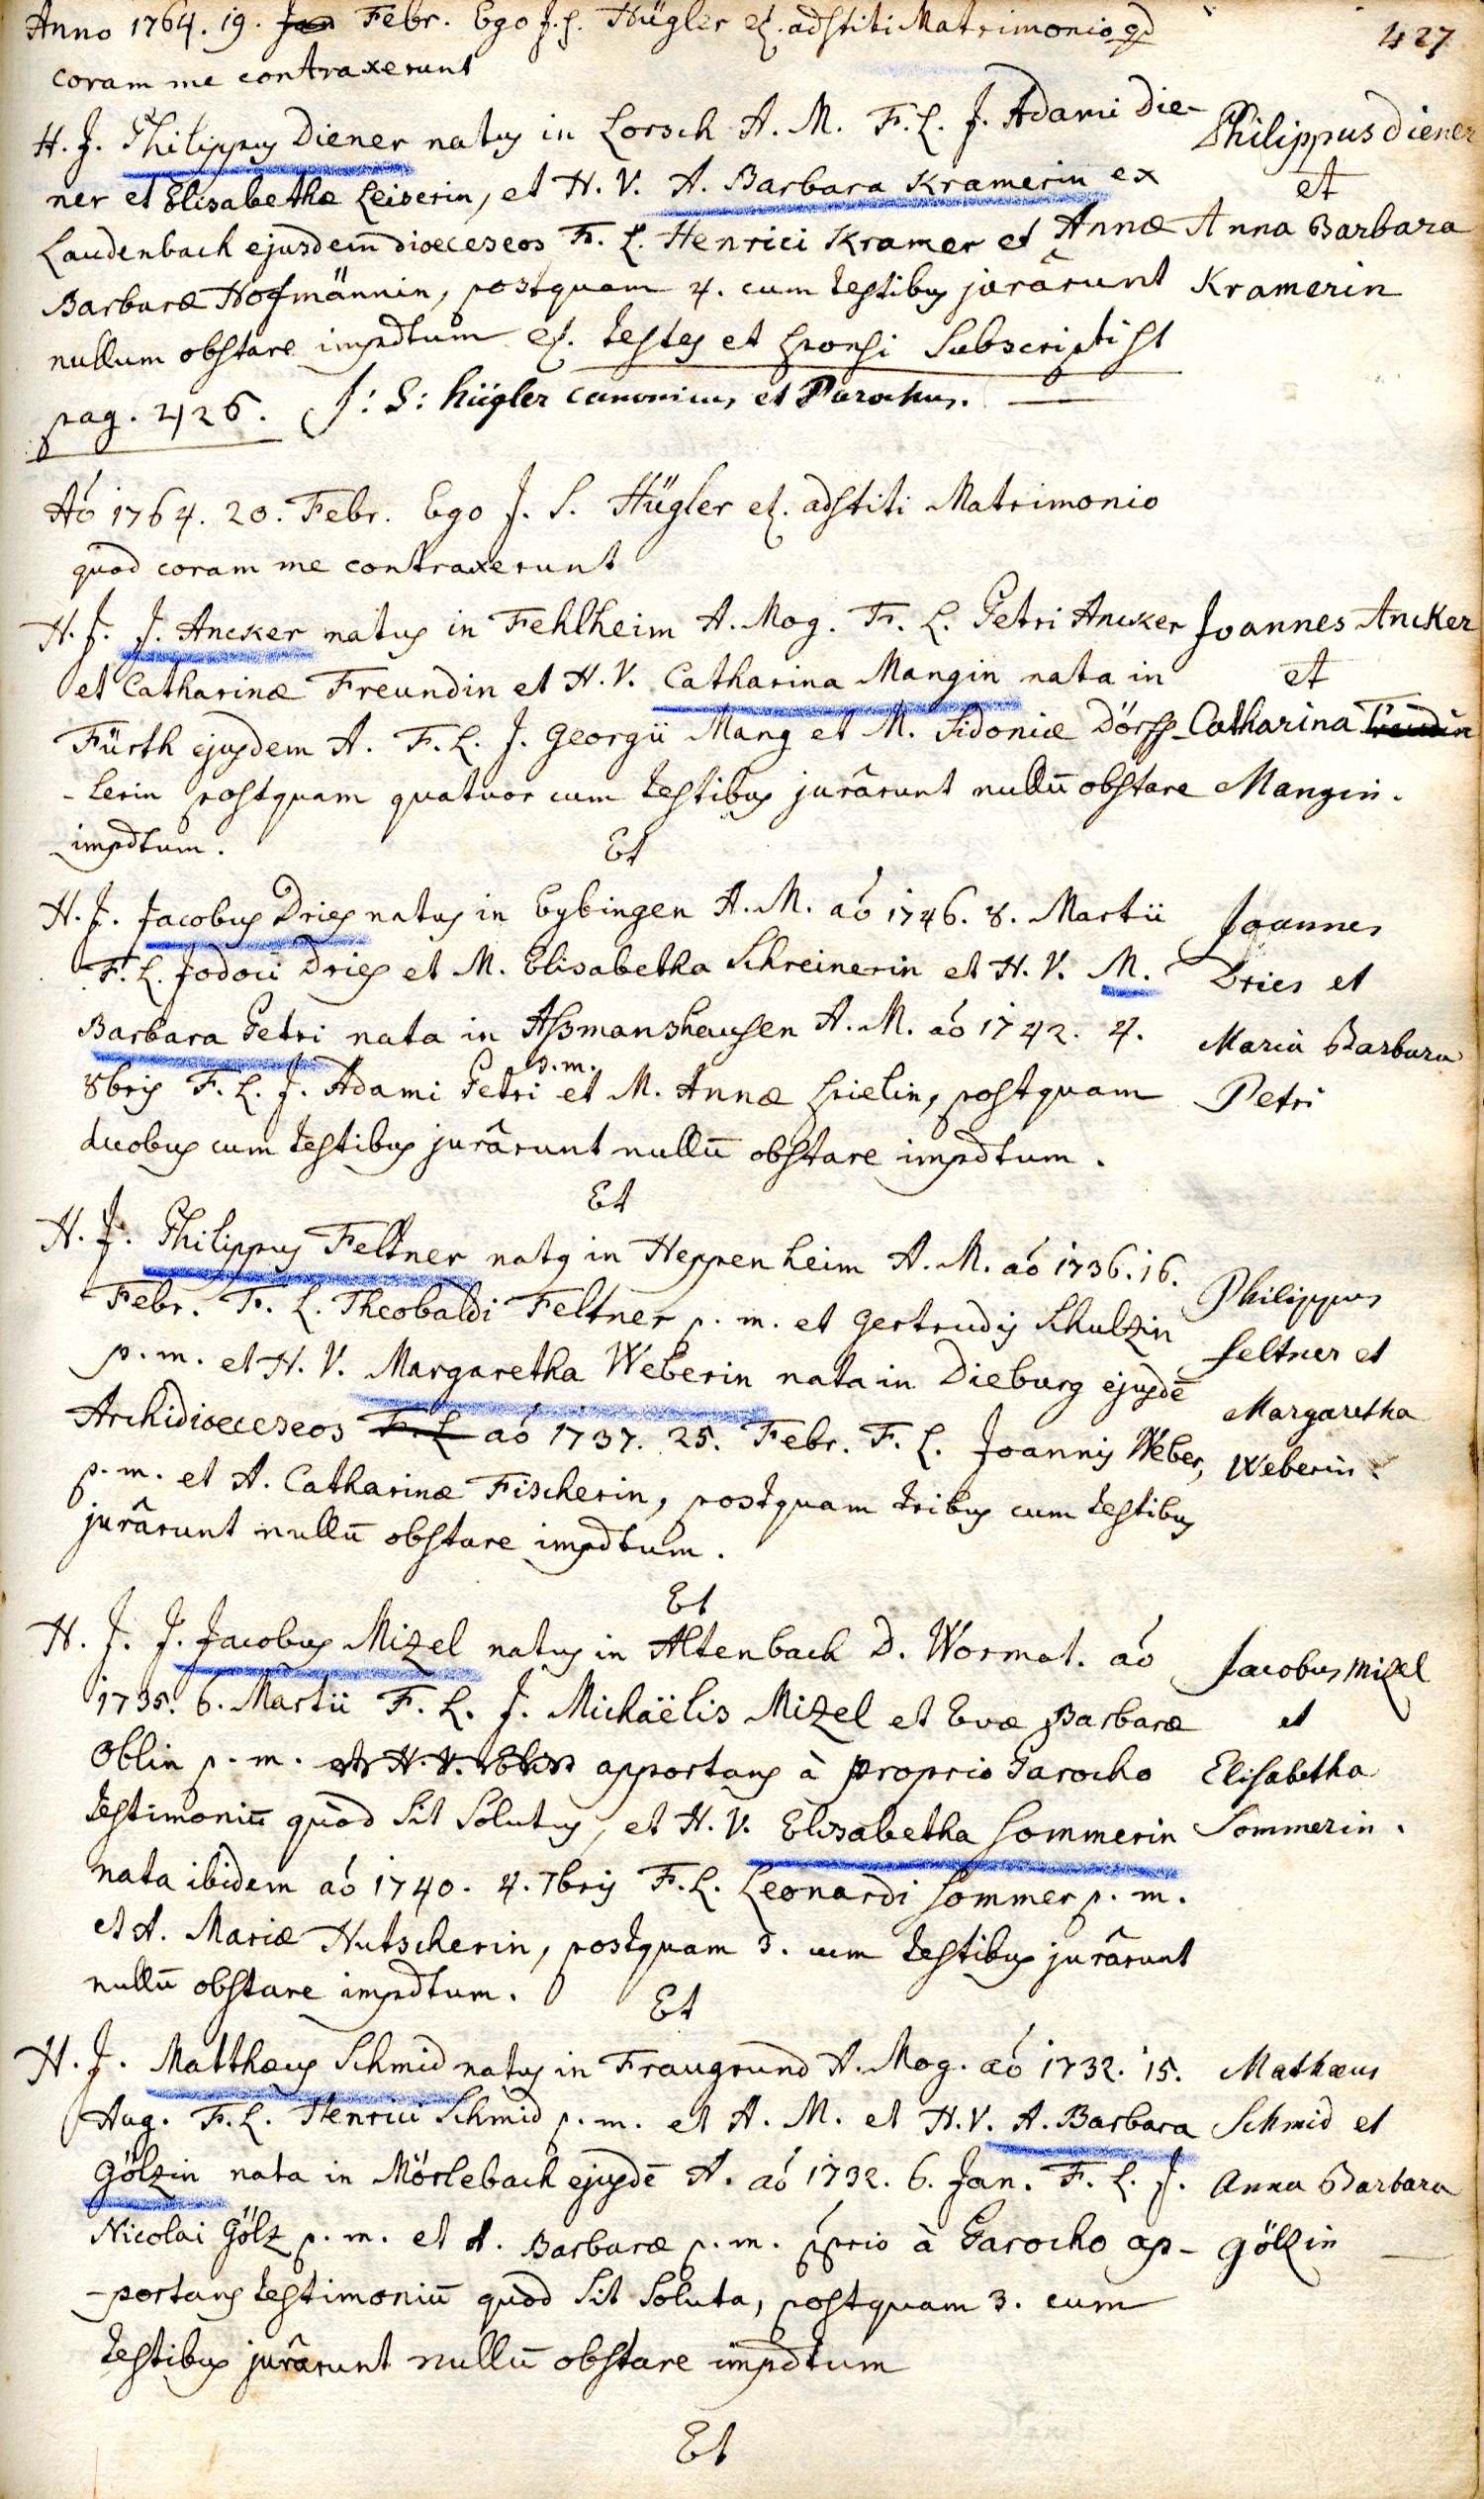 427
Anno 1764. 19. Jan Febr. Ego J. S. Hügler etc. adstiti Matrimonio qd
coram me contraxerunt
H. J. Philippus Diener natus in Lorsch A. M. F. L. J. Adami Die-
ner et Elisabethæ Leiserin, et H. V. A. Barbara Kramerin ex
Laudenbach ejusdem dioeceseos F. L. Henrici Kramer et Annæ
Barbaræ Hofmännin, postquam 4. cum testibus jurârunt
nullum obstare impdtum etc. testes et sponsi subscripti st
pag. 426. J: S: hügler canonicus et Parochus.
Philippus diener
et
Anna Barbara
Kramerin
Aó 1764. 20. Febr. Ego J. S. Hügler etc. adstiti Matrimonio
quod coram me contraxerunt
H. J. J. Ancker natus in Fehlheim A. Mog. F. L. Petri Ancker
et Catharinæ Freundin et H. V. Catharina Mangin nata in
Fürth ejusdem A. F. L. J. Georgii Mang et M. Sidoniæ Dörss-
-lerin postquam quatuor cum testibus jurârunt nullū obstare
impdtum.
Joannes Ancker
et
Catharina Freindin
Mangin.
Et
H. J. Jacobus Dries natus in Eybingen A. M. aó 1746. 8. Martii
F. L. Jodoci Dries et M. Elisabetha Schreinerin et H. V. M.
Barbara Petri nata in Aßmanshausen A. M. aó 1742. 4.
8bris F. L. J. Adami Petri p.m. et M. Annæ Spielin, postquam
duobus cum testibus jurârunt nullū obstare impdtum.
Joannes
Dries et
Maria Barbara
Petri
Et
H. J. Philippus Feltner natus in Heppenheim A. M. aó 1736. 16.
Febr. F. L. Theobaldi Feltner p. m. et Gertrudis Schulzin
p. m. et H. V. Margaretha Weberin nata in Dieburg ejusdē
Archidioeceseos F. L aó 1737. 25. Febr. F. L. Joannis Weber,
p. m. et A. Catharinæ Fischerin, postquam tribus cum testibus
jurârunt nullū obstare impdtum.
Philippus
feltner et
Margaretha
Weberin.
Et
H. J. J. Jacobus Mizel natus in Altenbach D. Wormat. aó
1735. 6. Martii F. L. J. Michaëlis Mizel et Evæ Barbaræ
Oblin p. m. apportans à proprio Parocho
testimoniū quòd sit solutus, et H. V. Elisabetha Sommerin
nata ibidem aó 1740. 4. 7bris F. L. Leonardi Sommer p. m.
et A. Mariæ Hutscherin, postquam 3. cum testibus jurârunt
nullū obstare impdtum.
Jacobus Mizel
et
Elisabetha
Sommerin.
Et
H. J. Matthæus Schmid natus in Fraugrund A. Mog. aó 1732. 15.
Aug. F. L. Henrici Schmid p. m. et A. M. et H. V. A. Barbara
Gölzin nata in Mörlebach ejusdē A. aó 1732. 6. Jan. F. L. J.
Nicolai Gölz p. m. et A. Barbaræ p. m. pprio à Parocho ap-
-portans testimoniū quòd sit soluta, postquam 3. cum
testibus jurârunt nullū obstare impdtum
Mathæus
Schmid et
Anna Barbara
Gölzin
Et